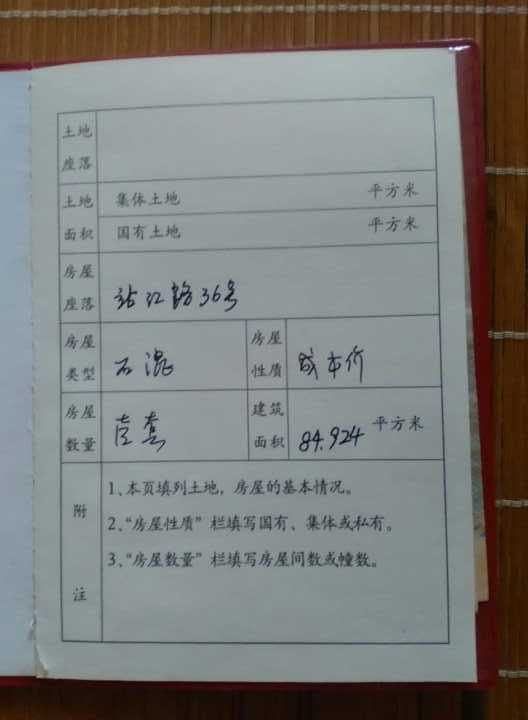 土地
座落
土地
面积
集体土地 平方米
国有土地 平方米
房屋
座落
站江路36号
房屋
类型
石混
房屋
性质
成本价
房屋
数量
壹套
建筑
面积
84.924 平方米
附
注
1、本页填列土地，房屋的基本情况。
2、“房屋性质”栏填写国有、集体或私有。
3、“房屋数量”栏填写房屋间数或幢数。